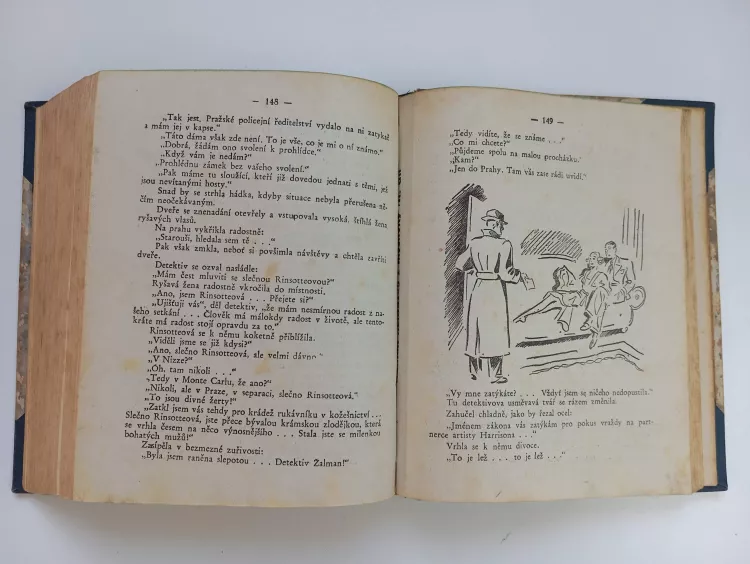 — 148 —
„Tak jest. Pražské policejní ředitelství vydalo na ni zatykač
a mám jej v kapse."
„Táto dáma však zde není. To je vše, co je mi o ní známo."
„Dobrá, žádám ono svolení k prohlídce."
„Když vám je nedám?"
„Prohlédnu zámek bez vašeho svolení."
„Pak máme tu sloužící, kteří již dovedou jednati s těmi, jež
jsou nevítanými hosty."
Snad by se strhla hádka, kdyby situace nebyla přerušena ně-
čím neočekávaným.
Dveře se znenadání otevřely a vstupovala vysoká, štíhlá žena
ryšavých vlasů.
Na prahu vykřikla radostně:
„Starouši, hledala sem tě . . ."
Pak však zmkla, neboť si povšimla návštěvy a chtěla zavříti
dveře.
Detektiv se ozval nasládle:
„Mám čest mluviti se slečnou Rinsotteovou?"
Ryšavá žena radostně vkročila do místnosti.
„Ano, jsem Rinsotteová . . . Přejete si?"
„Ujišťuji vás", děl detektiv, „že mám nesmírnou radost z na-
šeho setkání . . . Člověk má málokdy radost v životě, ale tento-
kráte má radost stojí opravdu za to."
Rinsotteová se k němu koketně přiblížila.
„Viděli jsme se již kdysi?"
„Ano, slečno Rinsotteová, ale velmi dávno
„V Nizze?"
„Oh, tam nikoli . . ."
„Tedy v Monte Carlu, že ano?"
„Nikoli, ale v Praze, v separaci, slečno Rinsotteová."
„To jsou divné žerty!"
„Zatkl jsem vás tehdy pro krádež rukávníku v koželnictví . . .
Slečno Rinsotteová, jste přece bývalou krámskou zlodějkou, která
se vrhla časem na něco výnosnějšího . . . Stala jste se milenkou
bohatých mužů!"
Zasípěla v bezmezné zuřivosti:
„Byla jsem raněna slepotou . . . Detektiv Zalman!"
— 149 —
„Tedy vidíte, že se známe . . ."
„Co mi chcete?"
„Půjdeme spolu na malou procházku."
„Kam?"
„Jen do Prahy. Tam vás zase rádi uvidí."
„Vy mne zatýkáte? . . . Vždyť jsem se ničeho nedopustila."
Tu detektivova usměvavá tvář se rázem změnila.
Zahučel chladně, jako by řezal ocel:
„Jménem zákona vás zatýkám pro pokus vraždy na part-
nerce artisty Harrisona . . ."
Vrhla se k němu divoce.
„To je lež . . . to je lež . . ."